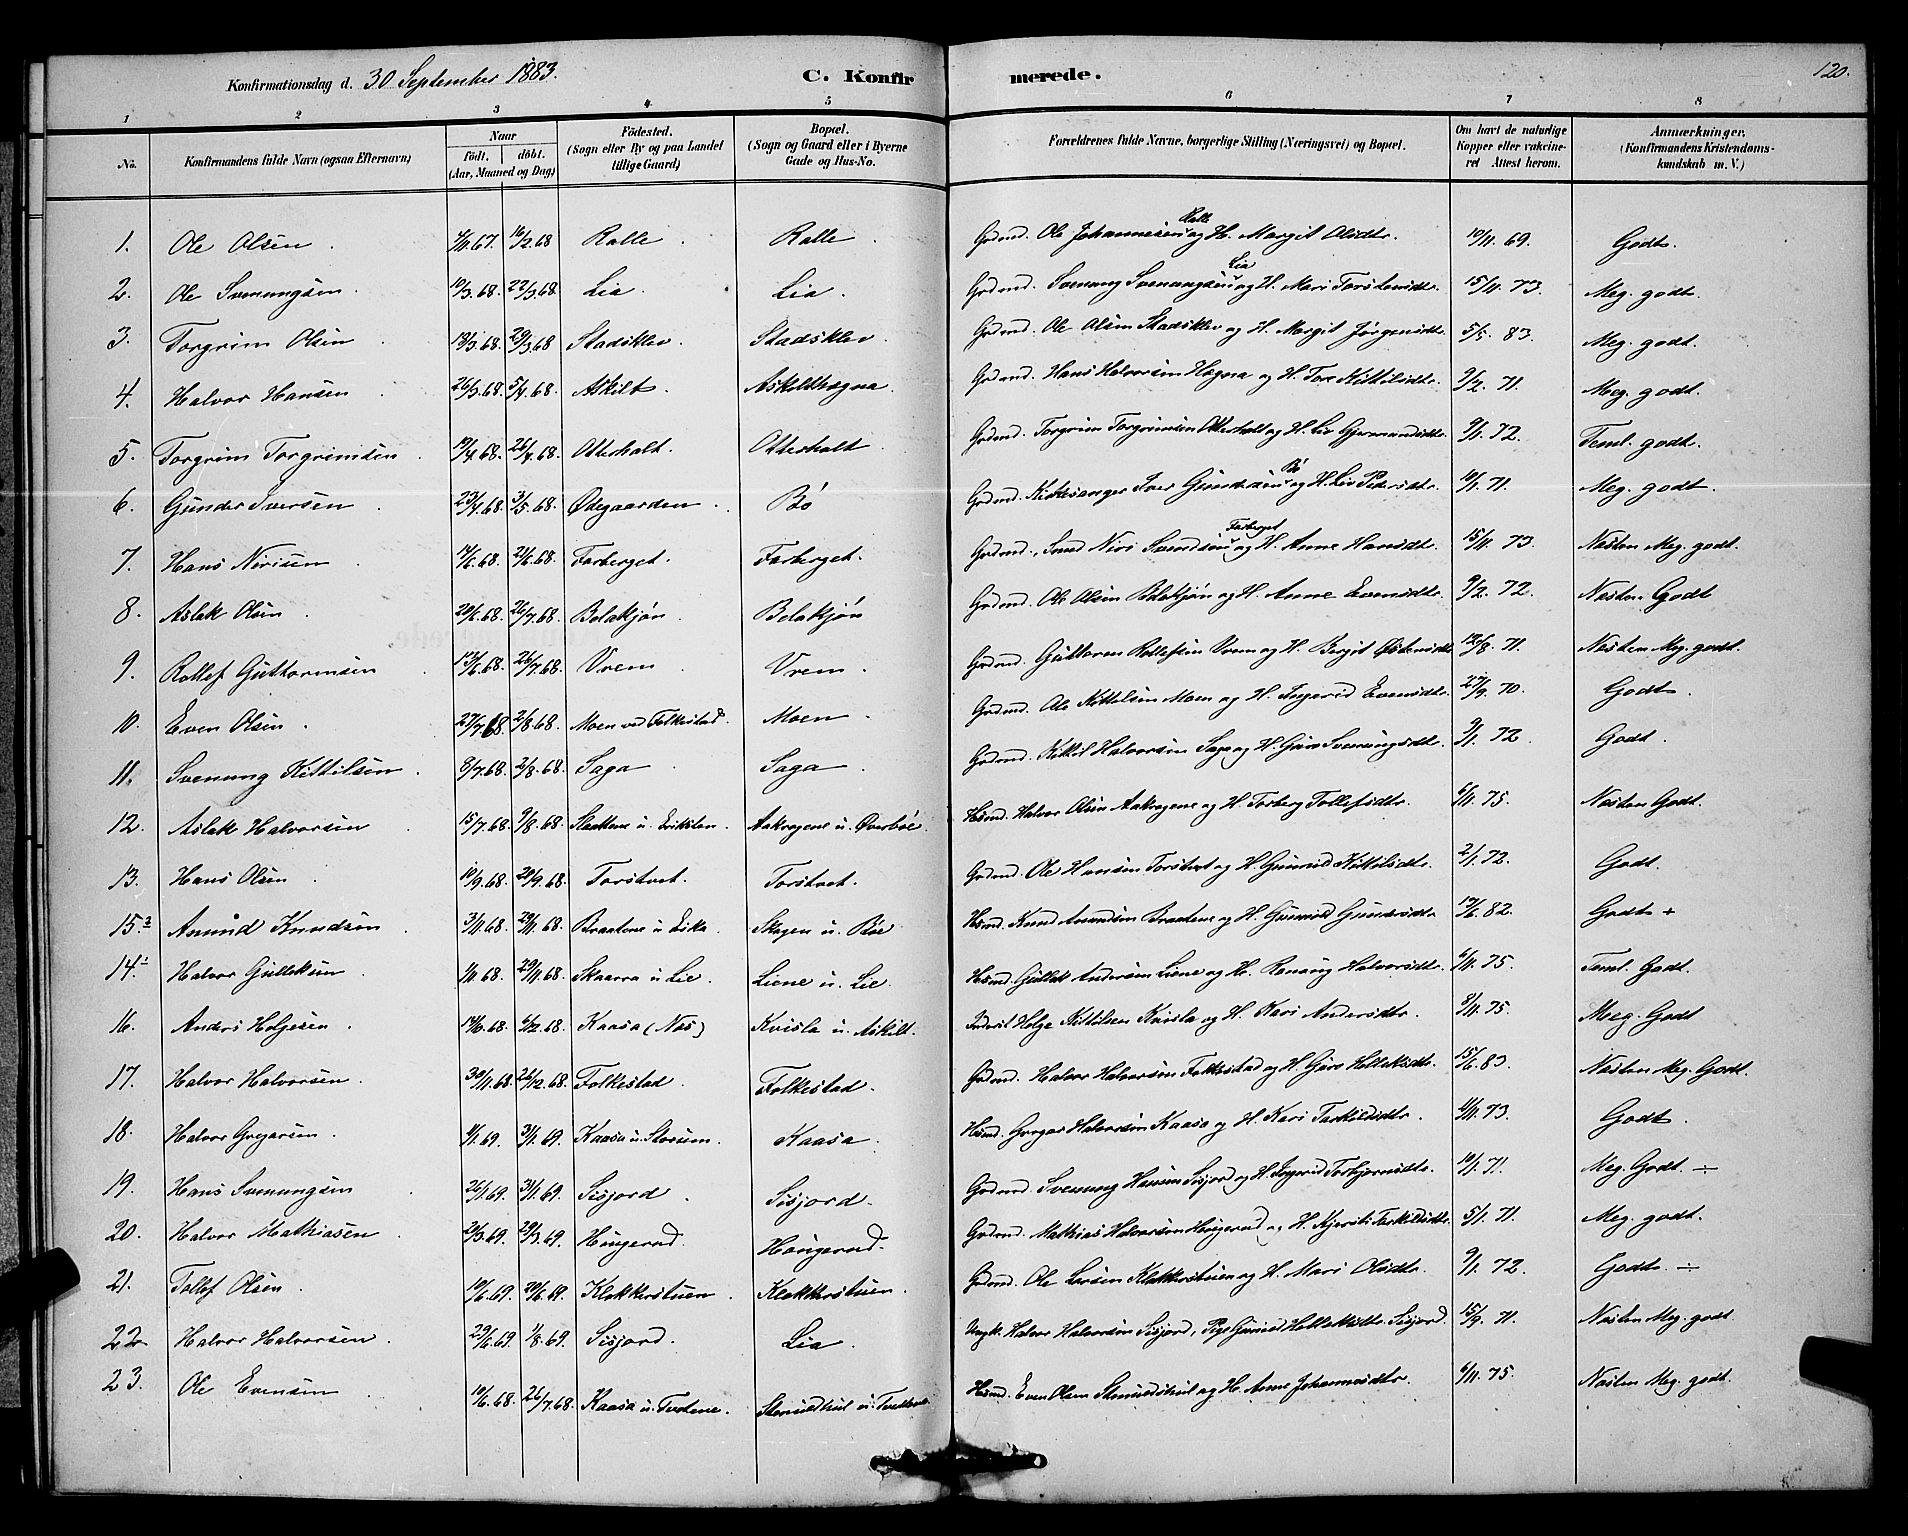 Konfirmationsdag d. 30 September 1883. C. Konfirmerede. 120.
1 2 3 4 5 6 7 8
No. Konfirmandens fulde Navn (ogsaa Efternavn) Naar födt. döbt. (Aar, Maaned og Dag) Födested. (Sogn eller By og paa Landet tillige Gaard) Bopæl. (Sogn og Gaard eller i Byerne Gade og Hus-No. Forældrenes fulde Navne, borgerlige Stilling (Næringsvei) og Bopæl. Om havt de naturlige Kopper eller vakcineret Attest herom. Anmærkninger. (Konfirmandens Kristendomskundskab m. V.)
1. Ole Olsen 16/2 68 Kalle Kalle Grdmd. Ole Johannesen Kalle og H. Margit Olsdtr. 10/11 69. Godt.
2. Ole Svenungsen 10/3 68. 22/3 68 Lia Lia Grdmd. Svenung Svenungsen Lia og H. Mari Torstensdtr. 15/11 73. Meg. godt
3. Torgrim Olsen 13/3 68. 29/3 68 Stadsklev Stadsklev Grdmd. Ole Olsen Stadsklev og H. Margit Jörgensdtr. 5/5 83. Meg. godt.
4. Halvor Hansen 26/3 68 5/4 68. Askilt Askildhægna Grdmd. Hans Halvorsen Hægna og H. Tore Kittilsdtr. 2/2 71. Meg. godt.
5. Torgrim Torgrimsen 19/4 68. 26/4 68. Otterholt Otterholt Grdmd. Torgrim Torgrimsen Otterholt og H. Liv Gjermundsdtr. 9/1 72. Teml. godt.
6. Gunder Iversen 23/4 68. 3/5 68. Ødegaarden Bö Grdmd. Kirkesanger Iver Gundersen Bö og H. Liv Pedersdtr. 10/1 71. Meg. godt.
7. Hans Nirisen 7/6 68. 21/6 68. Farberget. Farberget. Grdmd., Smed Niri Svendsen Farberget og H. Anne Hansdtr. 15/11 73. Næsten Meg. godt.
8. Aslak Olsen 20/6 68. 26/7 68. Bolakjön Bolakjön Grdmd. Ole Olsen Bolakjön og H. Anne Evensdtr. 9/2 72. Næsten Godt
9. Rollef Guttormsen 13/6 68. 26/7 68. Vrem Vrem Grdmd. Guttorm Rollefsen Vrem og H. Bergit Østensdtr. 12/8 71. Næsten Meg. godt.
10. Even Olsen 27/7 68 2/8 68. Moen ved Folkestad Moen Grdmd. Ole Kittilsen Moen og H. Ingerid Evensdtr. 27/9 70. Godt
11. Svenung Kittilsen 8/7 68. 2/8 68. Saga Saga Grdmd. Kittil Halvorsen Saga og H. Guro Svenungsdtr. 9/1 72 Godt
12. Aslak Halvorsen 15/7 68. 9/8 68. Slaakene u. Erikstein Aakrogene u. Øverböe Hsmd. Halvor Olsen Aakrogene og H. Torberg Tollefsdtr. 6/11 75. Næsten Godt.
13. Hans Olsen 10/9 68. 20/9 68. Torstvet. Torstvet. Grdmd. Ole Hansen Torstvet og H. Gunild Kittilsdtr. 2/1 72. Godt.
15. 2 Amund Knudsen 3/11 68. 29/11 68. Braatene u Erika Skogen u. Böe Hsmd. Knud Amundsen Braatene og H. Gunild Gundersdtr. 17/6 82. Godt +
14. 1 Halvor Gulleksen 1/11 68. 29/11 68. Skaarra u Lie Liene u. Lie Hsmd. Gullek Andersen Liene og H. Ranaug Halvorsdtr. 6/11 75. Teml. Godt.
16. Anders Helgesen 14/10 68. 6/12 68. Kaasa (Nes) Kvisla u. Askilt Inderst Helge Kittilsen Kvisla og H. Kari Andersdtr. 8/11 75. Meg. Godt
17. Halvor Halvorsen 30/11 68. 26/12 68. Folkestad Folkestad Grdmd. Halvor Halvorsen Folkestad og H. Guro Halleksdtr. 15/6 83. Næsten Meg. Godt.
18. Halvor Gregersen 1/1 69. 31/1 69. Kaasa u. Storum Kaasa Hsmd. Gregar Halvorsen Kaasa og H. Kari Tarkildsdtr. 4/11 73. Godt.
19. Hans Svenungsen 26/1 69. 31/1 69. Sisjord Sisjord Grdmd. Svenung Hansen Sisjord og H. Ingerid Torbjörnsdtr. 10/1 71. Meg. Godt. ÷
20. Halvor Mathiasen 21/3 69. 29/3 69. Haugerud Haugerud Grdmd. Mathias Halvorsen Haugerud og H. Kjersti Tarkildsdtr. 5/1 71. Meg. godt.
21. Tollef Olsen 10/6 69. 20/6 69. Klokkerstuen Klokkerstuen Grdmd. Ole Larsen Klokkerstuen og H. Mari Olsdtr. 9/1 72. Godt. ÷
22. Halvor Halvorsen 29/6 69 1/8 69. Sisjord Lia Ungk. Halvor Halvorsen Sisjord, Pige Gunild Halleksdtr. Sisjord 15/9 71. Næsten Meg. godt
23. Ole Evensen 10/6 68. 26/7 68. Kaasa u. Tvetene Stenuldhul u. Tvetene Hsmd. Even Olsen Stenuldshul og H. Anne Johannesdtr. 6/11 75. Næsten Meg. godt.